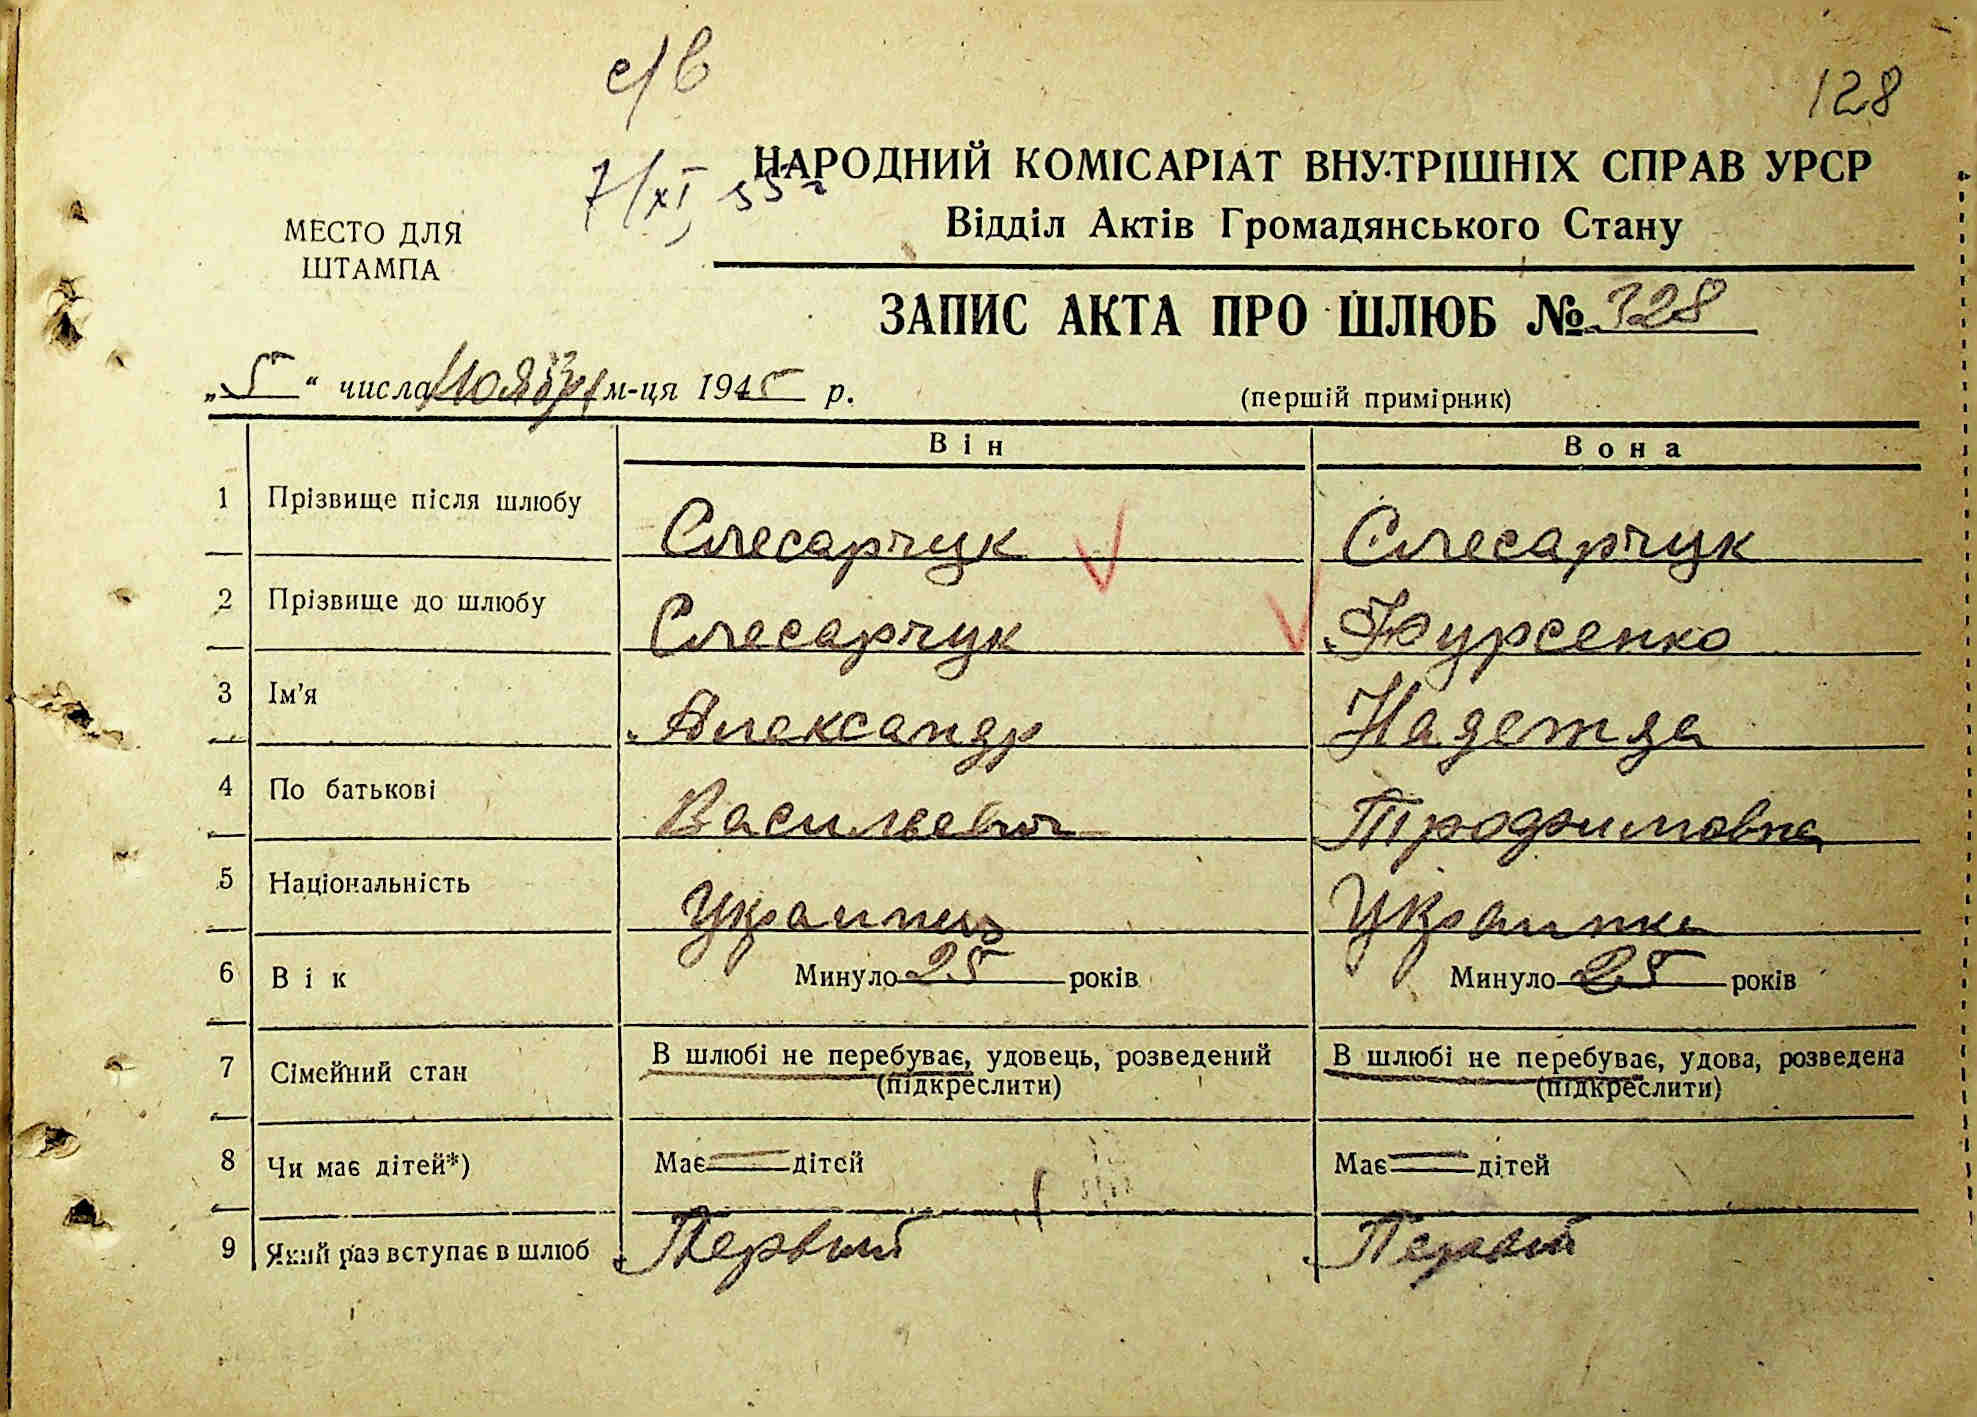 с/в
128
7/XI 55 г
НАРОДНИЙ КОМІСАРІАТ ВНУТРІШНІХ СПРАВ УРСР
Відділ Актів Громадянського Стану
МЕСТО ДЛЯ
ШТАМПА
ЗАПИС АКТА ПРО ШЛЮБ № 328
„5“ числа Ноября м-ця 1945 р.
(першій примірник)
Він Вона
1 Прізвище після шлюбу Слесарчук Слесарчук
2 Прізвище до шлюбу Слесарчук
3 Ім'я Александр Надежда
4 По батькові Васильевич Трофимовна
5 Національність Украинец Украинка
6 Вік Минуло 25 років Минуло 25 років
7 Сімейний стан В шлюбі не перебуває, удовець, розведений В шлюбі не перебуває, удова, розведена
(підкреслити) (підкреслити)
8 Чи має дітей*) Має — дітей Має — дітей
9 Який раз вступає в шлюб Первый Первый